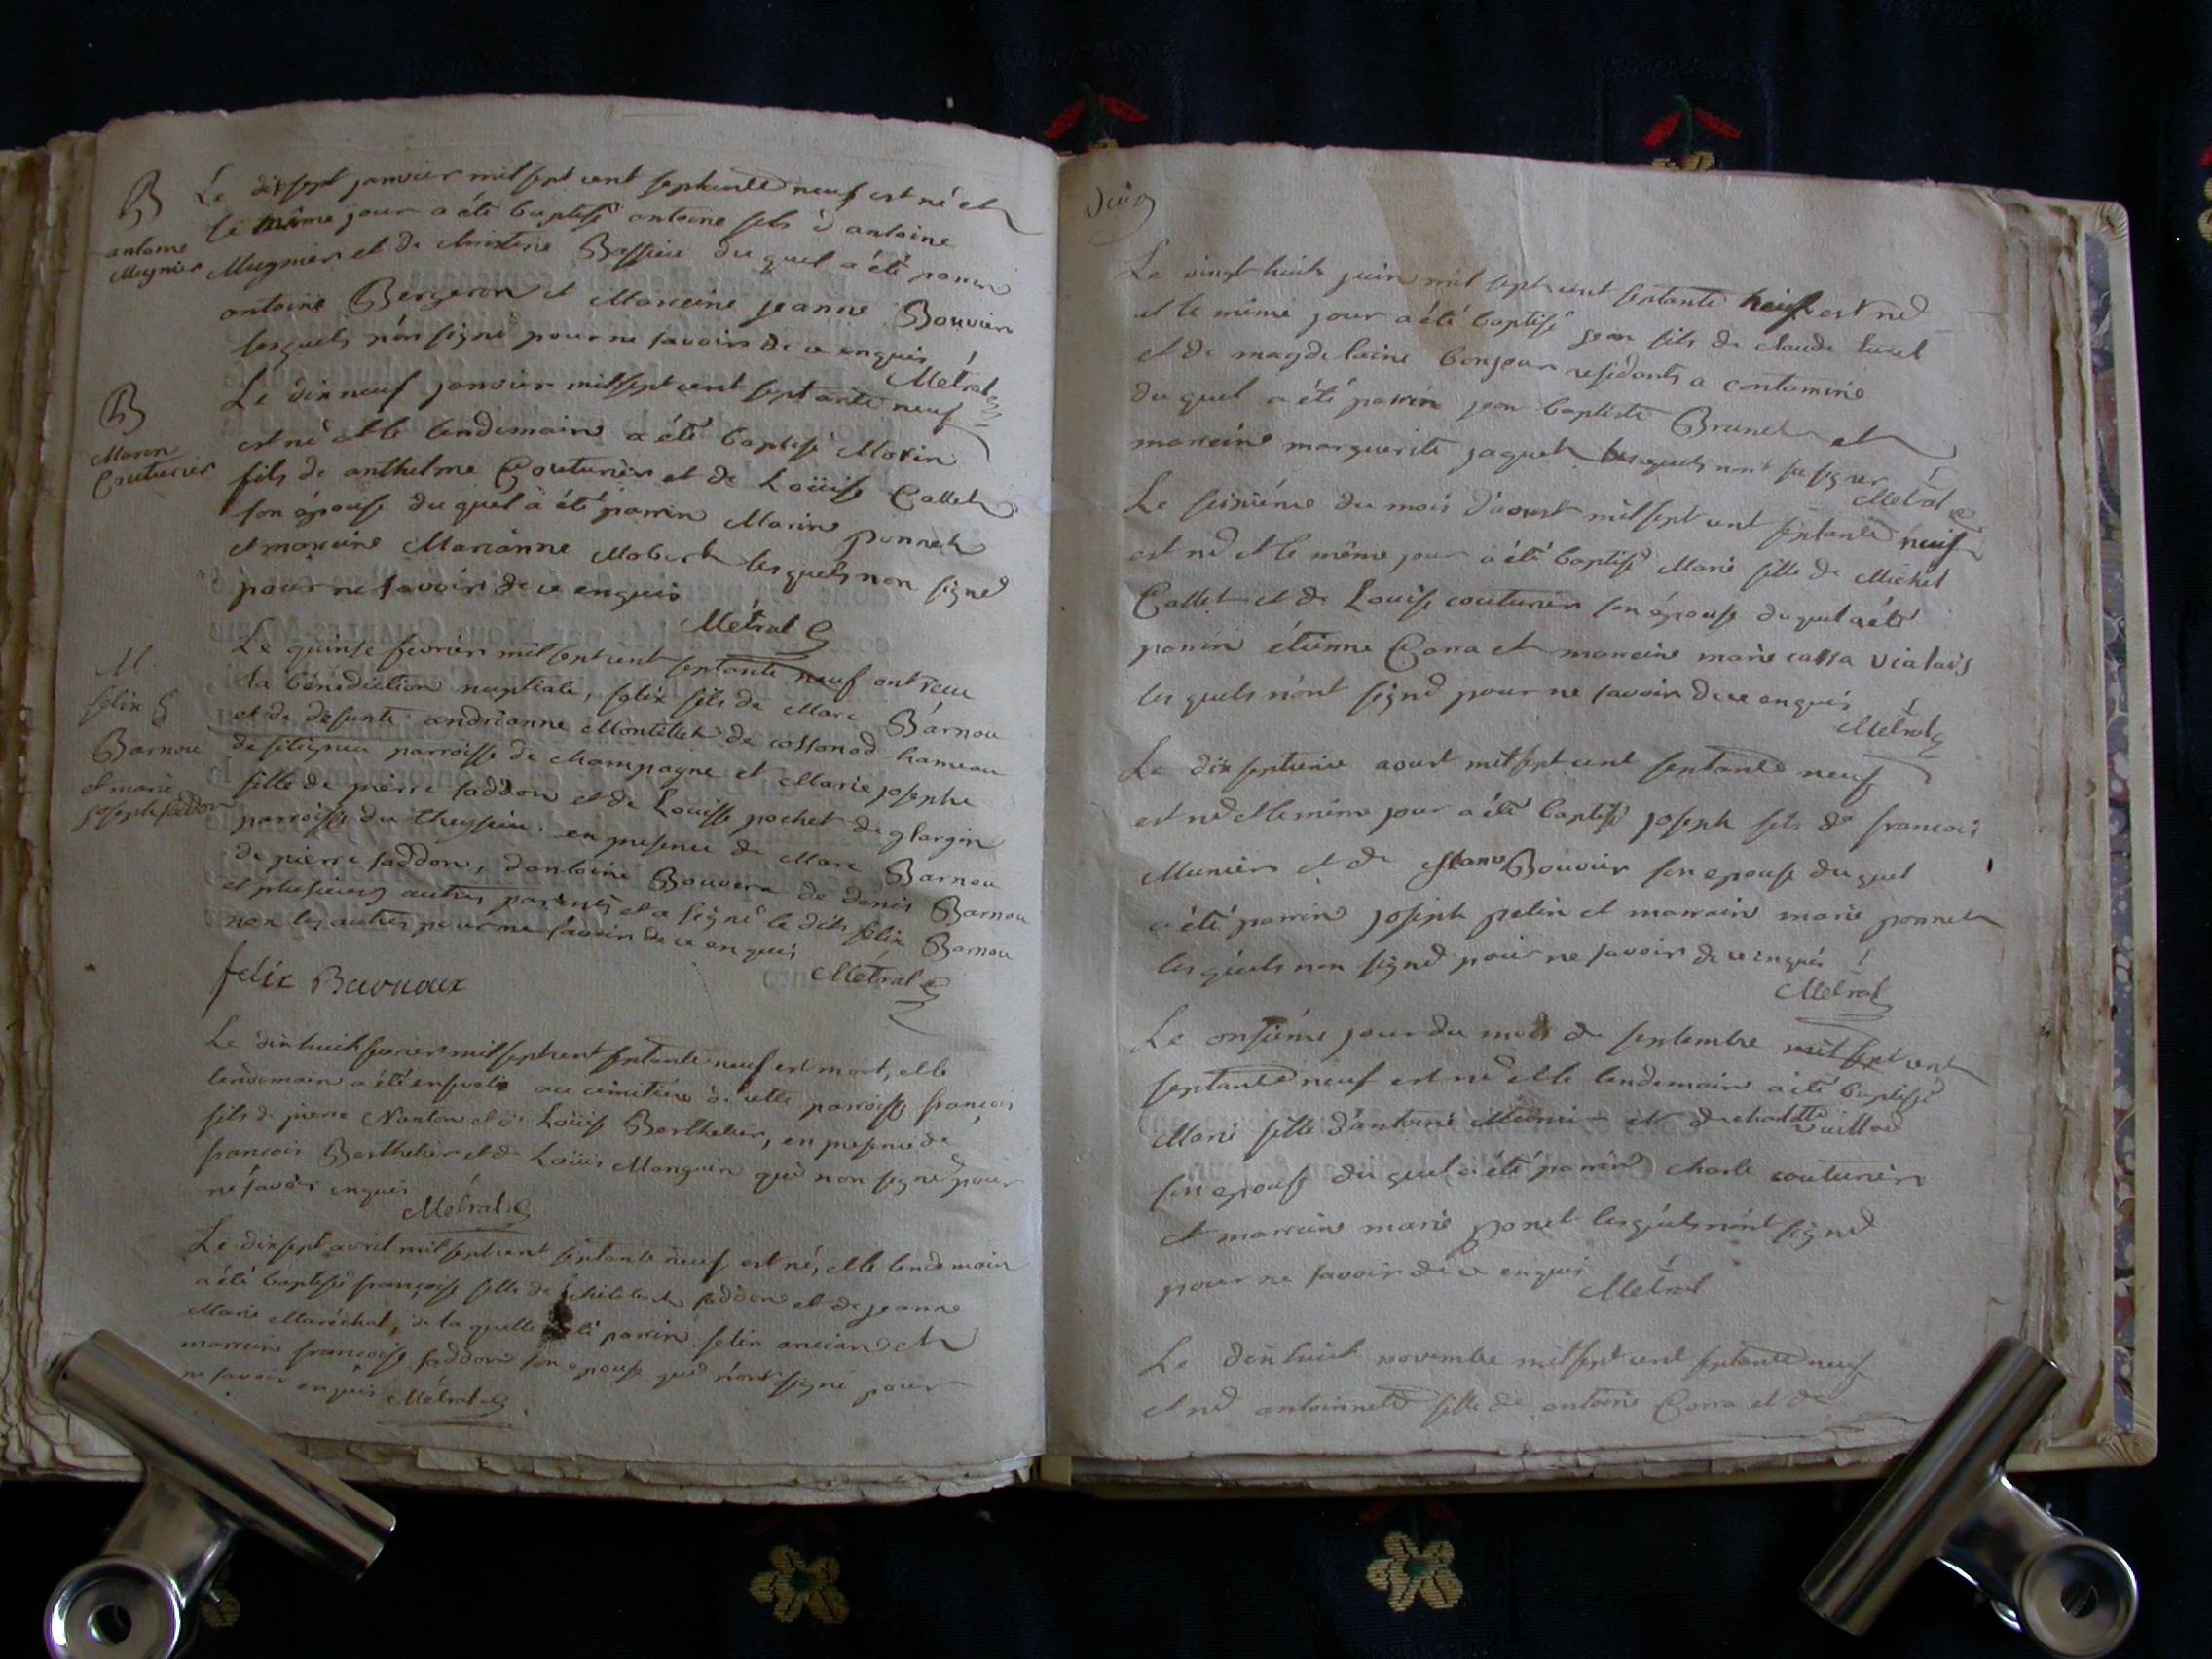 B
antoine
Mugnier
Le dixsept janvier mil sept cent septante neuf est né et
le même jour a été baptisé antoine fils d'antoine
Mugnier et de christine Bassieu du quel a été parin
antoine Bergeron et Mareine jeanne Bouvier
lesquels n'on signé pour ne savoir de ce enquis
Métral
B
Marin
Couturier
Le dix neuf janvier mil sept cent septante neuf
est né et le lendemain a été baptisé Marin
fils de anthelme Couturier et de Loüise Callet
son épouse du quel a été parrin Marin ponnet
et mareine Marianne Mobert lesquels non signé
pour ne savoir de ce enquis
Métral
M
felix
Barnou
et marie
joseph faddon
Le quinse fevrier mil sept cent septante neuf ont reçu
la bénédiction nuptiale, felix fils de Marc Barnou
et de defunte andrianne Montillet de cossonod hameau
de parroisse de champagne et Marie josephe
fille de pierre faddon et de Louise pochet de glargin
parroisse du theyssieu en presence de Marc Barnou
de pierre faddon, d'antoine Bouvera de denis Barnou
et plusieurs autres parents et a signé le dit felix Barnou
non les autres pour ne savoir de ce enquis
Métral
felix Barnoux
Le dix huit fevrier mil sept cent septante neuf est mort, et le
lendemain a été ensevelis au cimitiére de cette paroisse françois
fils de pierre Nanton et de Loüise Berthelier, en presence de
francois Berthelier et de Loüis Manguin qui non signé pour
ne savoir enquis
Métral
Le dixsept avril mil sept cent septante neuf est né, et le lendemain
a été baptisée françoise fille de philibert faddon et de jeanne
Marie Maréchal, de la quelle été parin felix ancian et
marreine françoise faddon son epouse qui n'ont signé pour
ne savoir enquis Métral
Le vingt huit juin mil sept cent septante neuf est né
et le même jour a été baptisé jean fils de claude
et de magdelaine bonjour residants a contamine
du quel a été parrin jean baptiste Brunet et
mareine marguerite jaquet lesquels n'ont su signer
Métral
Le seisiéme du mois d'aoust mil sept cent septante neuf
est né et le même jour a été baptisé Marie fille de Michel
Callet et de Louise couturier son épouse du quel a été
parrin étienne Carra et marreine marie
les quels n'ont signé pour ne savoir de ce enquis
Métral
Le dix septieme aoust mil sept cent septante neuf
est né et le mime jour a été baptisé joseph fils de francois
Munier et de Bouvier son epouse du quel
a été parrin joseph pelin et marrain marie ponnet
les quels non signé pour ne savoir de ce enquis
Métral
Le onsiéme jour du mois de septembre mil sept cent
septante neuf est né et le lendemain a été baptisé
Marie fille d'antoine Munier et de
son epouse du quel a été parrin charle couturier
et marreine marie ponet les quels n'ont signé
pour ne savoir de ce enquis
Métral
Le dix huit novembre mil sept cent septante neuf
et né antoinette fille de antoine Carra et de